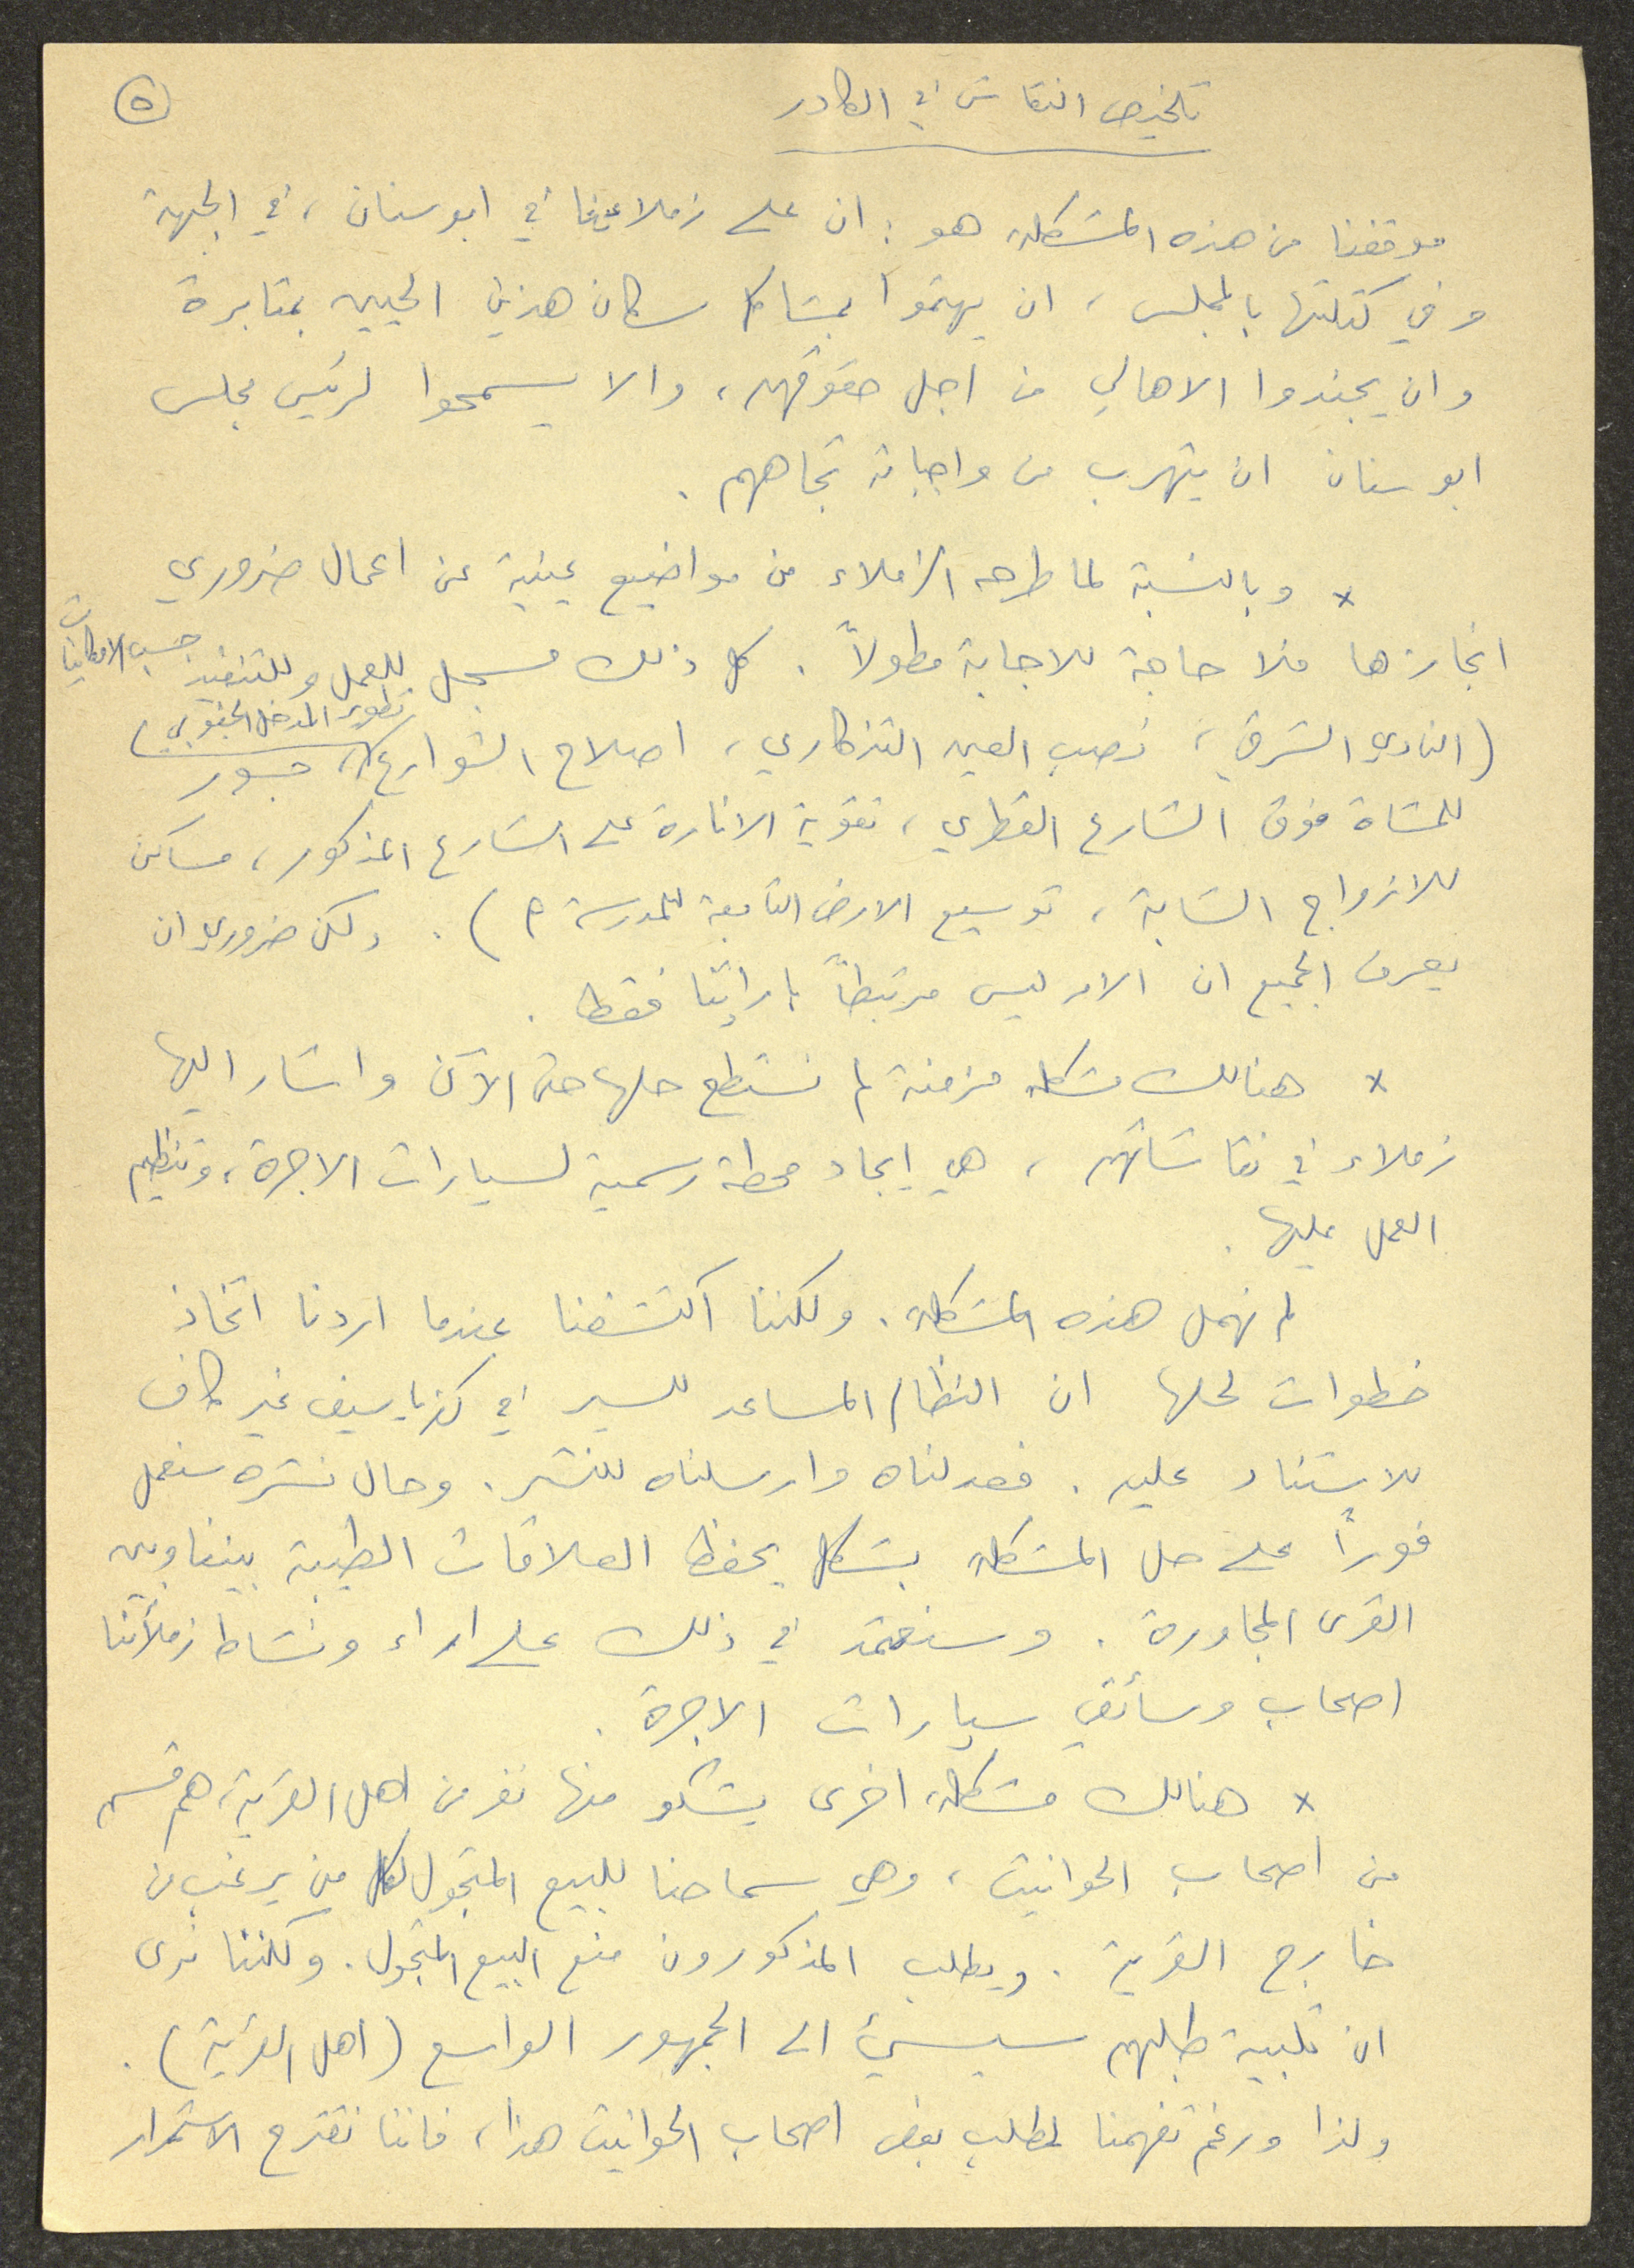 تلخيص النقاش في الكادر
٥
موقفنا من هذه المشكلة هو: ان على زملاءنا في ابوسنان، في الجبهة
وفي كتلتها بالمجلس، ان يهتموا بمشاكل سكان هذين الحيين بمثابرة
وان يجندوا الاهالي من اجل حقوقهم، والا يسمحوا لرئيس مجلس
ابوسنان ان يتهرب من واجباته تجاههم.
× وبالنسبة لما طرحه الزملاء من مواضيع عينية عن اعمال ضروري
انجازها فلا حاجة للاجابة مطولاً. كل ذلك مسجل للعمل وللتنفيذ حسب الامكانيات
(النادي الشرقي، نصب العين التذكاري، اصلاح الشوارع، تطوير المدخل الجنوبي، جسور
للمشاة فوق الشارع القطري، تقوية الانارة على الشارع المذكور، مساكن
للازواج الشابة، توسيع الارض التابعة للمدرسة م). ولكن ضروري ان
يعرف الجميع ان الامر ليس مرتبطاً بارادتنا فقط.
× هنالك مشكلة مزمنة لم نستطع حلها حتى الآن واشار اليها
زملاء في نقاشاتهم، هي ايجاد محطة رسمية لسيارات الاجرة، وتنظيم
العمل عليها.
لم نهمل هذه المشكلة. ولكننا اكتشفنا عندما اردنا اتخاذ
خطوات لحلها ان النظام المساعد للسير في كفر ياسيف غير كاف
للاستناد عليه. فعدلناه وارسلناه للنشر. وحال نشره سنعمل
فوراً على حل المشكلة بشكل يحفظ العلاقات الطيبة بيننا وبين
القرى المجاورة. وسنعتمد في ذلك على اراء ونشاط زملائنا
اصحاب وسائقي سيارات الاجرة.
× هنالك مشكلة اخرى يشكو منها نفر من اهل القرية، هم قسم
من اصحاب الحوانيت، وهي سماحنا للبيع المتجول لكل من يرغب من
خارج القرية. ويطلب المذكورون منع البيع المتجول. ولكننا نرى
ان تلبية طلبهم سيسيء الى الجمهور الواسع (اهل القرية).
ولذا ورغم تفهمنا لمطلب بعض اصحاب الحوانيت هذا، فاننا نقترح الاستمرار